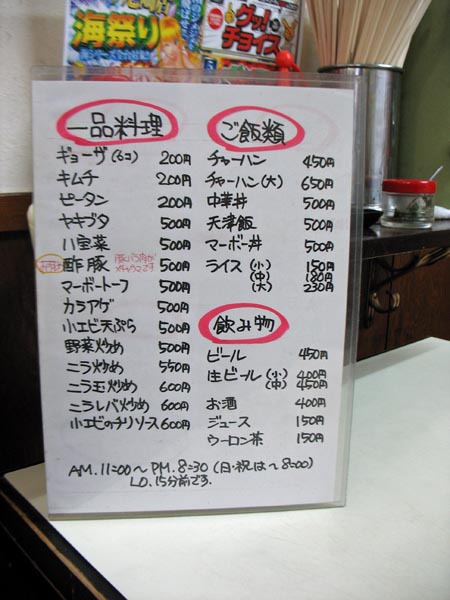 海祭り
グッ!と
チョイス
一品料理
ギョーザ(6コ) 200円
キムチ 200円
ピータン 200円
ヤキブタ 500円
八宝菜 500円
酢豚 500円
マーボートーフ 500円
カラアゲ 500円
小エビ天ぷら 500円
野菜炒め 500円
ニラ炒め 550円
ニラ玉炒め 600円
ニラレバ炒め 600円
小エビのチリソース 600円
ご飯類
チャーハン 450円
チャーハン(大) 650円
中華丼 500円
天津飯 500円
マーボー丼 500円
ライス(小) 150円
(中) 180円
(大) 230円
飲み物
ビール 450円
生ビール(小) 400円
(中) 450円
お酒 400円
ジュース 150円
ウーロン茶 150円
AM.11:00〜PM.8:30(日・祝は〜8:00)
LO.15分前です.